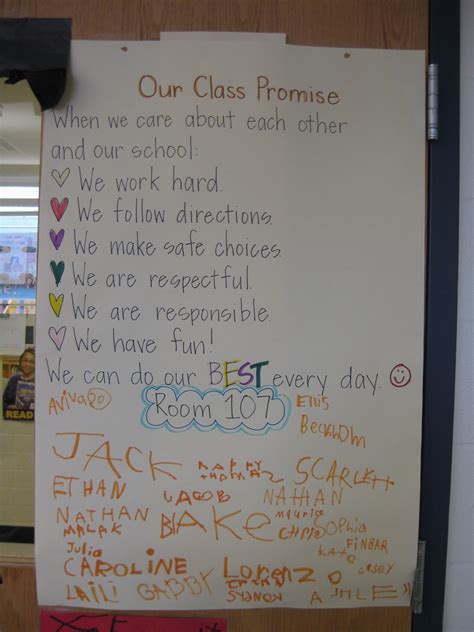 Our Class Promise
When we care about each other
and our school:
We work hard.
We follow directions.
We make safe choices.
We are respectful.
We are responsible.
We have fun!
We can do our BEST every day.
Aviva
Room 107
Ellis
Beckholm
JACK
SCARLETT
ETHAN
JACOB
NATHAN
NATHAN
BlAKe
Maurice
Chris
Sophia
MALAK
Julia
FINBAR
KATE
CASEY
CAROLINE
Lorenzo
LAILI
GABBY
SYDNEY
READ